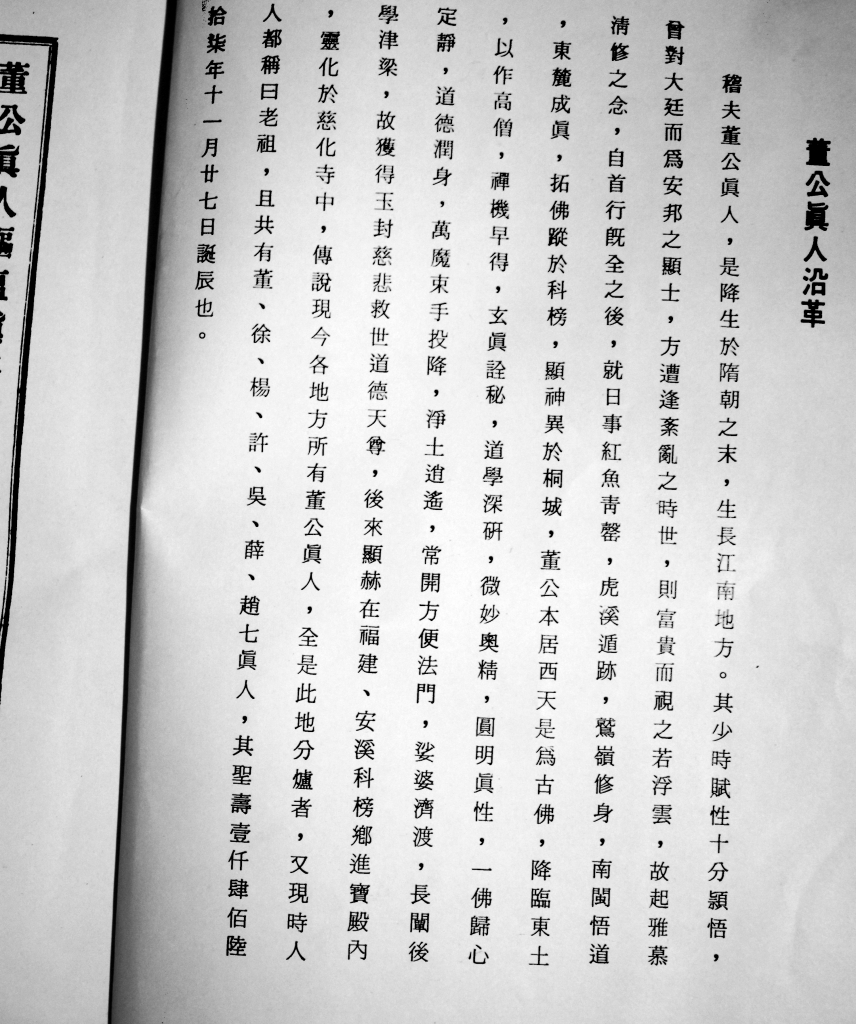 董公眞人沿革
稽夫董公眞人，是降生於隋朝之末，生長江南地方。其少時賦性十分頴悟，
曾對大廷而爲安邦之顯士，方遭逢紊亂之時世，則富貴而視之若浮雲，故起雅慕
清修之念，自首行旣全之後，就日事紅魚靑罄，虎溪遁跡，鷲嶺修身，南閩悟道
，東麓成眞，拓佛蹤於科榜，顯神異於桐城，董公本居西天是爲古佛，降臨東土
，以作高僧，禪機早得，玄眞詮秘，道學深硏，微妙奧精，圓明眞性，一佛歸心
定靜，道德潤身，萬魔束手投降，淨土逍遙，常開方便法門，娑婆濟渡，長闡後
學津梁，故獲得玉封慈悲救世道德天尊，後來顯赫在福建、安溪科榜鄉進寶殿內
，靈化於慈化寺中，傳說現今各地方所有董公眞人，全是此地分爐者，又現時人
人都稱曰老祖，且共有董、徐、楊、許、吳、薛、趙七眞人，其聖壽壹仟肆佰陸
拾柒年十一月廿七日誕辰也。
董公眞人